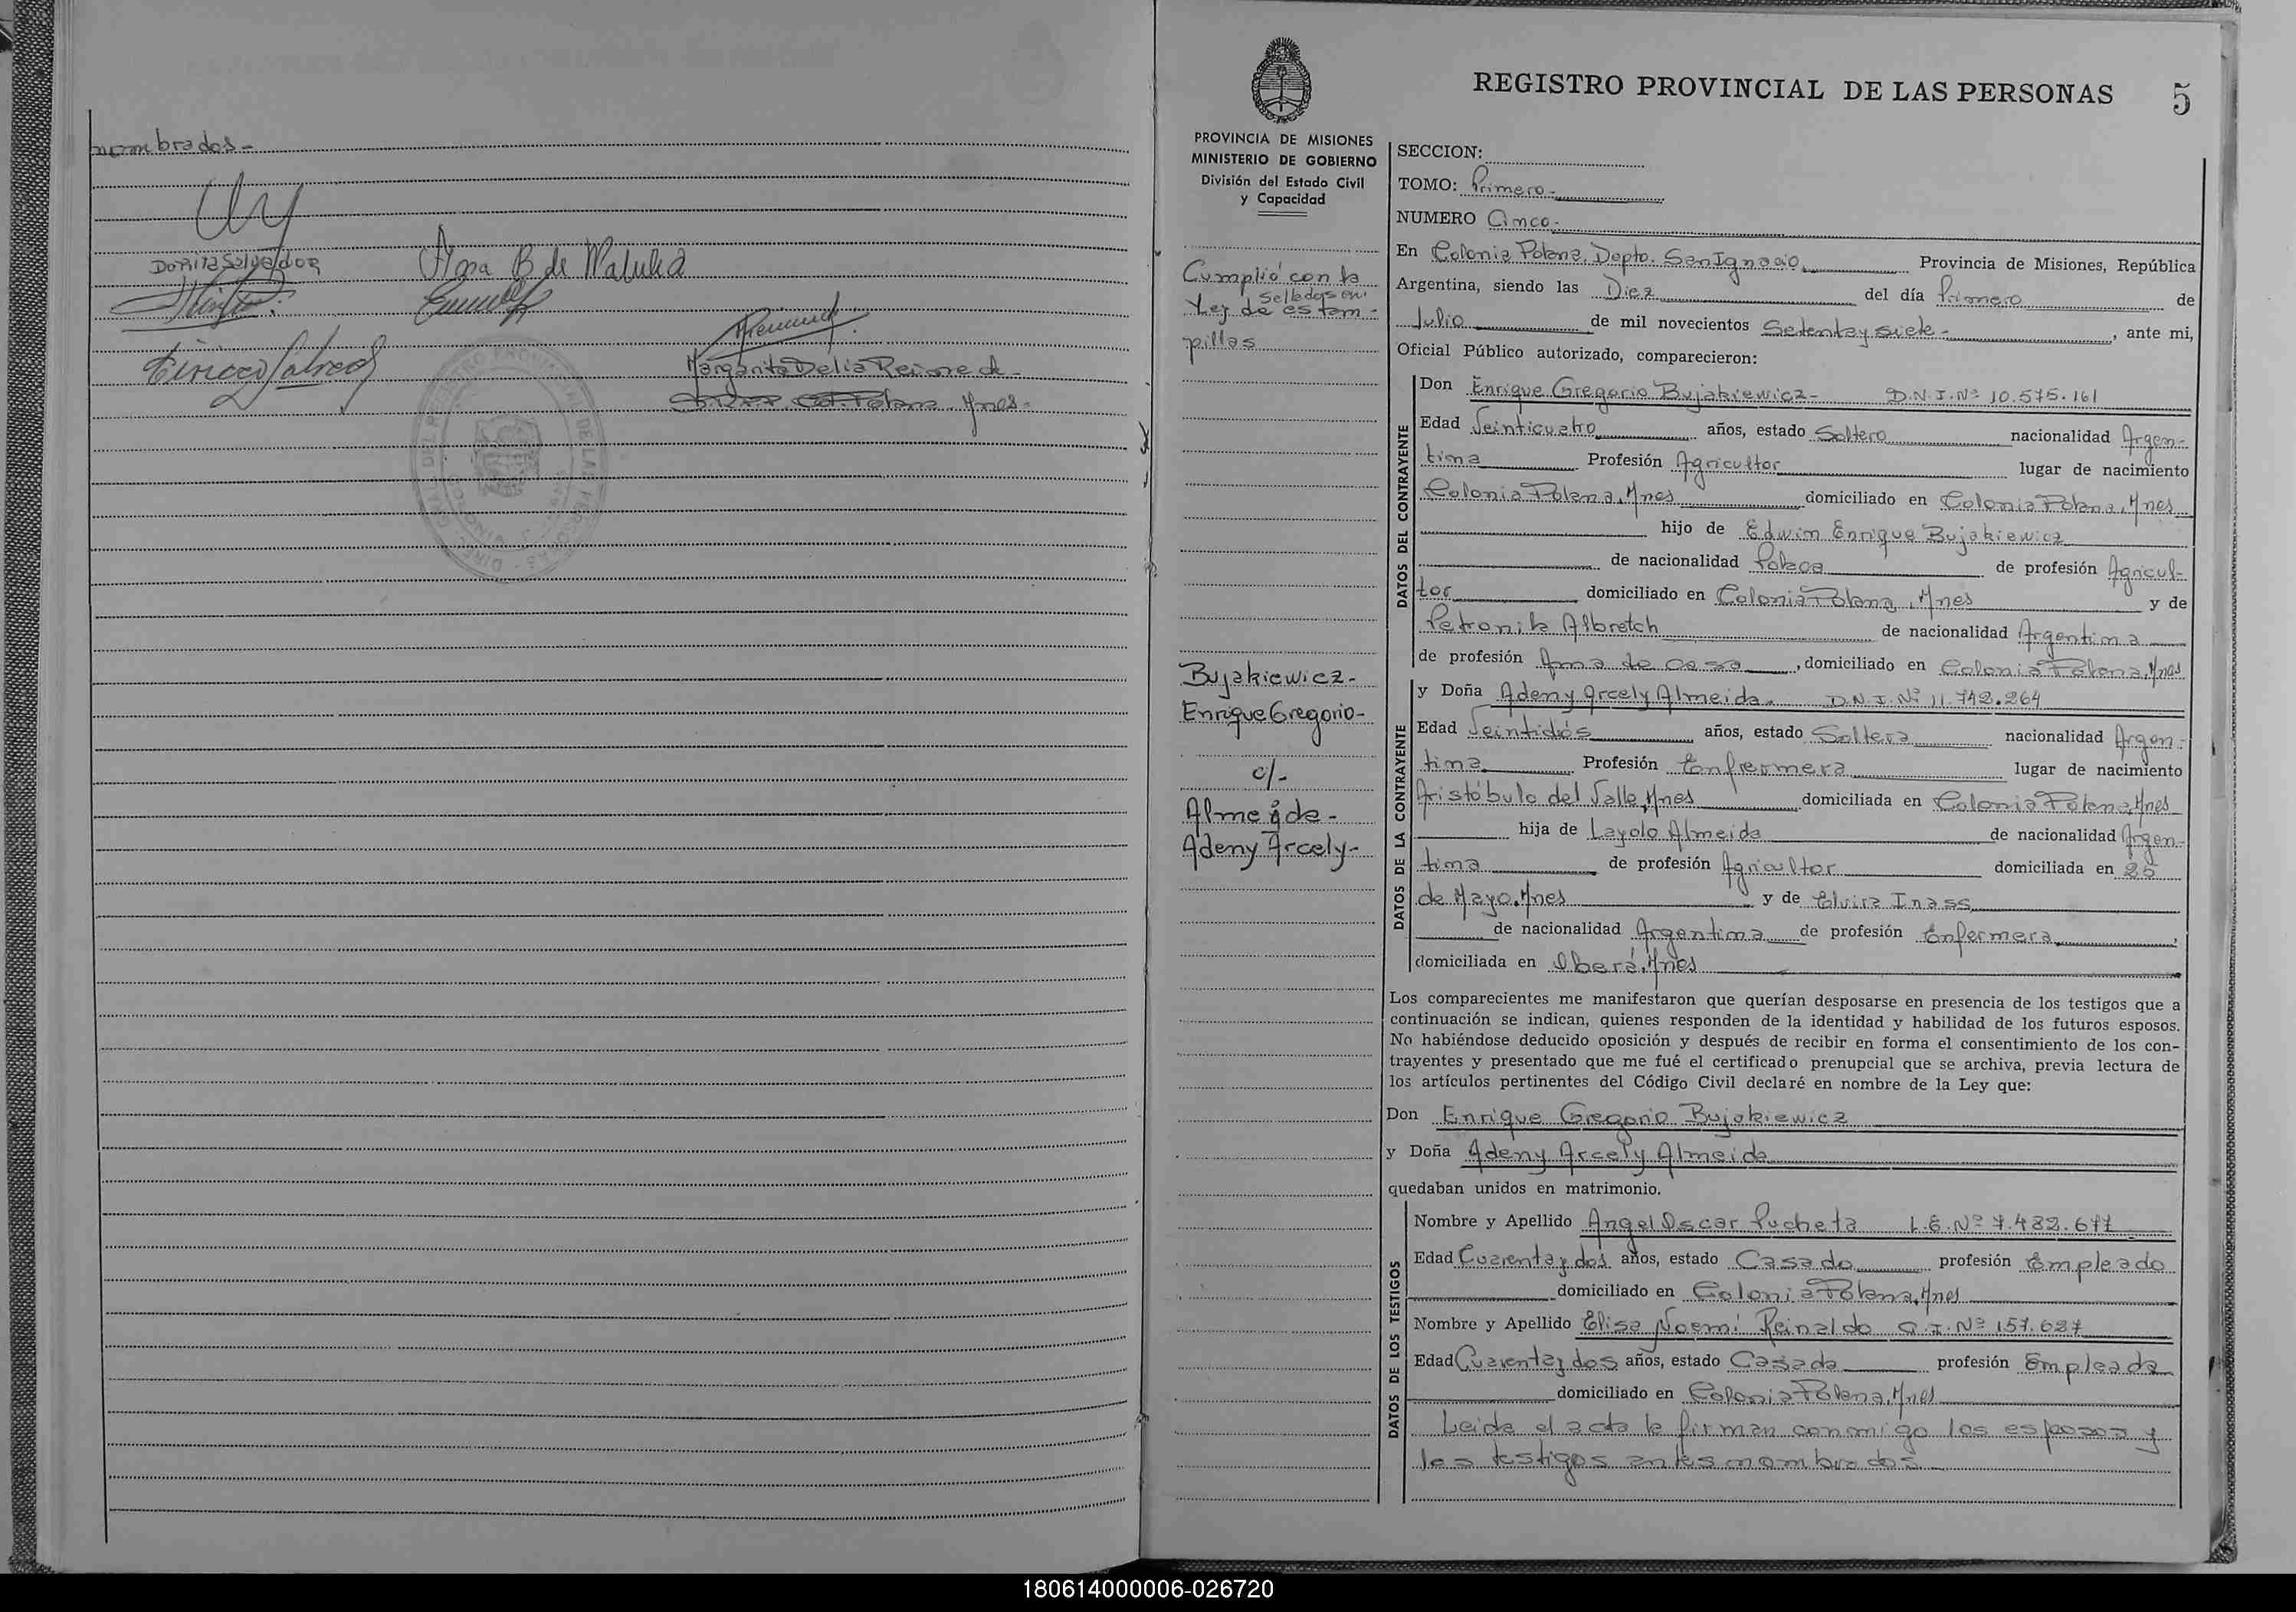 nombrados-
Dorita Salvador
Ana B de Maluka
Margarita Delia Reine de
Col. Polana. Mnes-
REGISTRO PROVINCIAL DE LAS PERSONAS 5
PROVINCIA DE MISIONES
MINISTERIO DE GOBIERNO
División del Estado Civil
y Capacidad
Cumplió con la
Ley de Sellados en
estam-
pillas
Bujakiewicz-
Enrique Gregorio-
c/-
Almeida-
Adeny Arcely-
SECCION:
TOMO: Primero-
NUMERO Cinco-
En Colonia Polana, Depto. San Ignacio, Provincia de Misiones, República
Argentina, siendo las Diez del día Primero de
Julio de mil novecientos Setenta y siete-, ante mi,
Oficial Público autorizado, comparecieron:
DATOS DEL CONTRAYENTE
Don Enrique Gregorio Bujakiewicz- D.N.I.Nº 10.575.161
Edad Veinticuatro años, estado Soltero nacionalidad Argen-
tina Profesión Agricultor lugar de nacimiento
Colonia Polana, Mnes domiciliado en Colonia Polana, Mnes
hijo de Edwin Enrique Bujakiewicz
de nacionalidad Polaca de profesión Agricul-
tor domiciliado en Colonia Polana, Mnes y de
Petronila Albretch de nacionalidad Argentina
de profesión Ama de casa, domiciliado en Colonia Polana, Mnes
DATOS DE LA CONTRAYENTE
y Doña Adeny Arcely Almeida. D.N.I.Nº 11.742.264
Edad Veintidós años, estado Soltera nacionalidad Argen-
tina Profesión Enfermera lugar de nacimiento
Aristóbulo del Valle, Mnes domiciliada en Colonia Polana, Mnes
hija de Layolo Almeida de nacionalidad Argen-
tina de profesión Agricultor domiciliada en 25
de Mayo. Mnes y de Elvira Inass
de nacionalidad Argentina de profesión Enfermera,
domiciliada en Oberá, Mnes
Los comparecientes me manifestaron que querían desposarse en presencia de los testigos que a
continuación se indican, quienes responden de la identidad y habilidad de los futuros esposos.
No habiéndose deducido oposición y después de recibir en forma el consentimiento de los con-
trayentes y presentado que me fué el certificado prenupcial que se archiva, previa lectura de
los artículos pertinentes del Código Civil declaré en nombre de la Ley que:
Don Enrique Gregorio Bujakiewicz
y Doña Adeny Arcely Almeida
quedaban unidos en matrimonio.
DATOS DE LOS TESTIGOS
Nombre y Apellido Angel Oscar Pucheta L.E.Nº 7.482.677
Edad Cuarenta y dos años, estado Casado profesión Empleado
domiciliado en Colonia Polana, Mnes
Nombre y Apellido Elisa Noemí Reinaldo C.I.Nº 157.627
Edad Cuarenta y dos años, estado Casada profesión Empleada
domiciliado en Colonia Polana, Mnes
Leida el acta la firman conmigo los esposos y
los testigos antes nombrados
180614000006-026720